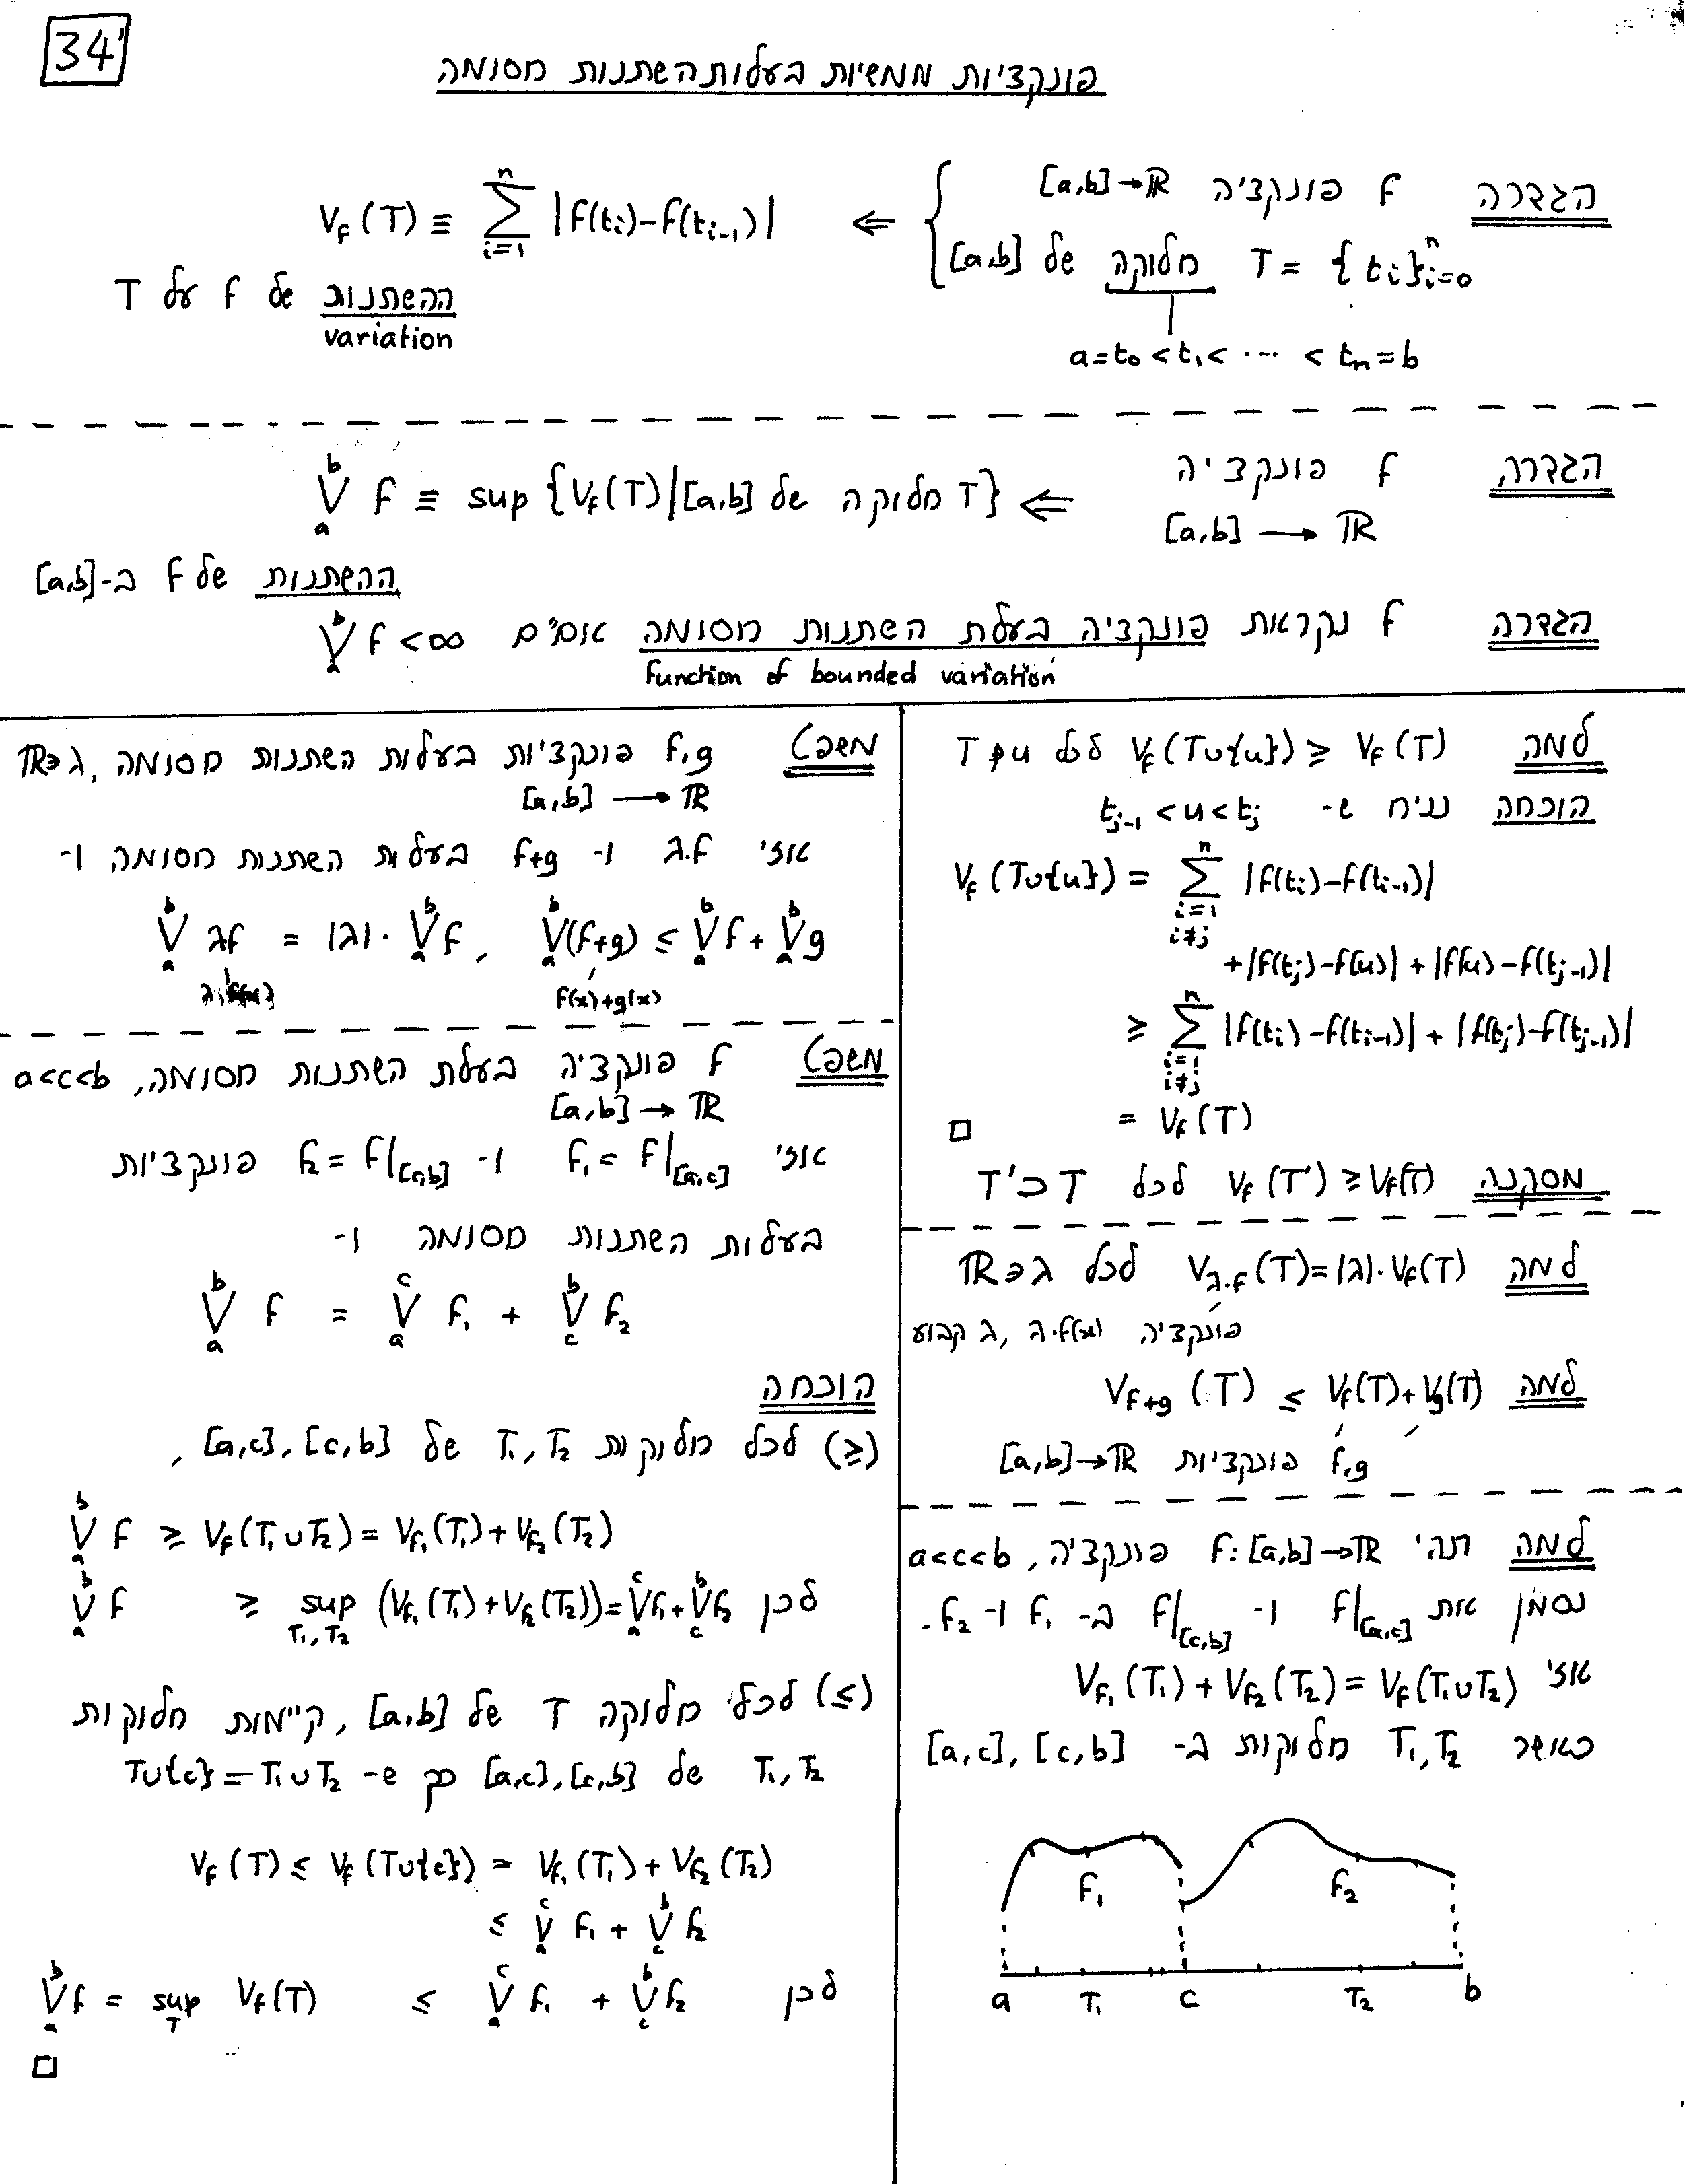 34
פונקציות ממשיות בעלות השתנות חסומה
הגדרה f פונקציה [a,b]→ℝ
T = {t_i}_{i=0}^n חלוקה של [a,b]
a=t_0<t_1< ⋯ <t_n=b
⇐ V_f(T) ≡ Σ_{i=1}^n |f(t_i)-f(t_{i-1})|
ההשתנות של f על T
variation
הגדרה f פונקציה
[a,b] ⟶ ℝ
⇐ V_a^b f ≡ sup {V_f(T) | [a,b] של חלוקה T}
ההשתנות של f ב-[a,b]
הגדרה f נקראת פונקציה בעלת השתנות חסומה אם״ם V_a^b f < ∞
function of bounded variation
למה V_f(T∪{u}) ≥ V_f(T) לכל u∉T
הוכחה נניח ש- t_{j-1}<u<t_j
V_f(T∪{u}) = Σ_{i=1, i≠j}^n |f(t_i)-f(t_{i-1})|
+|f(t_j)-f(u)|+|f(u)-f(t_{j-1})|
≥ Σ_{i=1, i≠j}^n |f(t_i)-f(t_{i-1})|+|f(t_j)-f(t_{j-1})|
= V_f(T) □
מסקנה V_f(T') ≥ V_f(T) לכל T'⊃T
למה V_{λ·f}(T)=|λ|·V_f(T) לכל λ∈ℝ
פונקציה λ·f(x), λ קבוע
למה V_{f+g}(T) ≤ V_f(T)+V_g(T)
f,g פונקציות [a,b]→ℝ
למה תהי f:[a,b]→ℝ פונקציה, a<c<b
נסמן את f|_{[a,c]} ו- f|_{[c,b]} ב- f_1 ו- f_2.
אזי V_{f_1}(T_1)+V_{f_2}(T_2)=V_f(T_1∪T_2)
כאשר T_1,T_2 חלוקות ב- [a,c],[c,b]
f_1 f_2
a T_1 c T_2 b
משפט f,g פונקציות בעלות השתנות חסומה, λ∈ℝ
[a,b] ⟶ ℝ
אזי λ·f ו- f+g בעלות השתנות חסומה ו-
V_a^b λf = |λ|·V_a^b f, V_a^b(f+g) ≤ V_a^b f + V_a^b g
f(x)+g(x)
משפט f פונקציה בעלת השתנות חסומה, a<c<b
[a,b] → ℝ
אזי f_1=f|_{[a,c]} ו- f_2=f|_{[c,b]} פונקציות
בעלות השתנות חסומה ו-
V_a^b f = V_a^c f_1 + V_c^b f_2
הוכחה
(≥) לכל חלוקות T_1,T_2 של [a,c],[c,b],
V_a^b f ≥ V_f(T_1∪T_2)=V_{f_1}(T_1)+V_{f_2}(T_2)
לכן V_a^b f ≥ sup_{T_1,T_2} (V_{f_1}(T_1)+V_{f_2}(T_2))=V_a^c f_1+V_c^b f_2
(≤) לכל חלוקה T של [a,b], קיימות חלוקות
T_1,T_2 של [a,c],[c,b] כך ש- T∪{c}=T_1∪T_2
V_f(T) ≤ V_f(T∪{c}) = V_{f_1}(T_1)+V_{f_2}(T_2)
≤ V_a^c f_1 + V_c^b f_2
לכן V_a^b f = sup_T V_f(T) ≤ V_a^c f_1 + V_c^b f_2
□